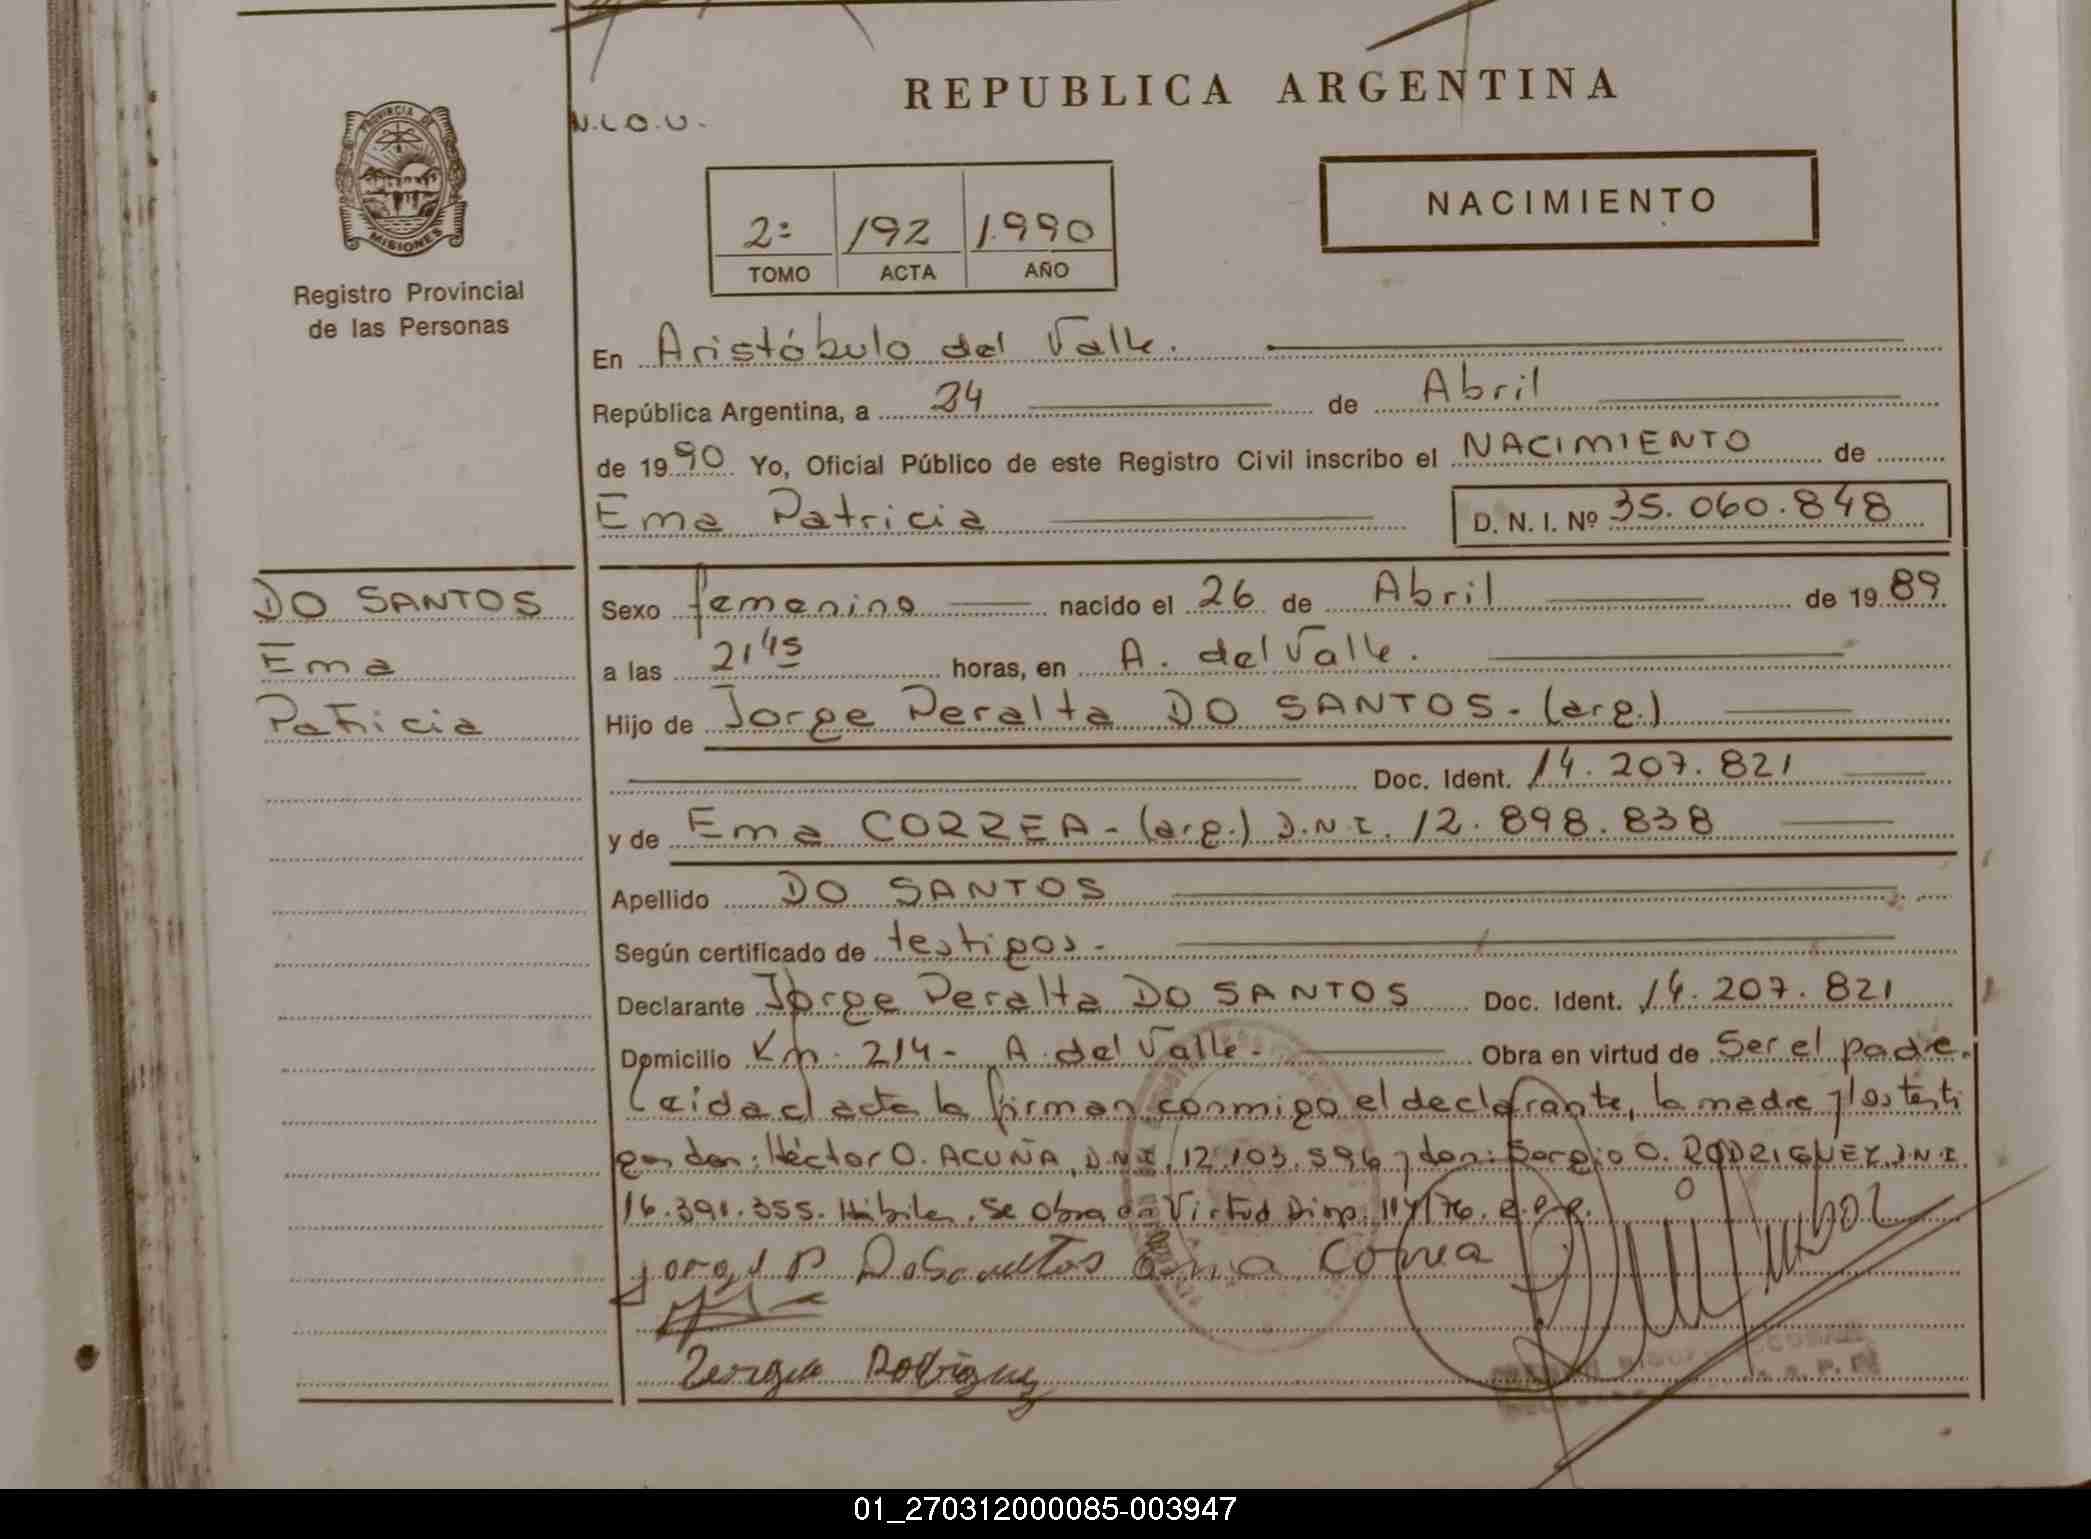 REPUBLICA ARGENTINA
PROVINCIA DE
MISIONES
Registro Provincial
de las Personas
NACIMIENTO
2º 192 1.990
TOMO ACTA AÑO
En Aristóbulo del Valle.
República Argentina, a 24 de Abril
de 1990 Yo, Oficial Público de este Registro Civil inscribo el NACIMIENTO de
Ema Patricia D. N. I. Nº 35.060.848
DO SANTOS
Ema
Patricia
Sexo femenino nacido el 26 de Abril de 1989
a las 21 45 horas, en A. del Valle.
Hijo de Jorge Peralta DO SANTOS - (arg.)
Doc. Ident. 14.207.821
y de Ema CORREA - (arg.) D.N.I. 12.898.838
Apellido DO SANTOS
Según certificado de testigos.
Declarante Jorge Peralta DO SANTOS Doc. Ident. 14.207.821
Domicilio Km. 214 - A. del Valle - Obra en virtud de Ser el padre.
Leida el acta la firman conmigo el declarante, la madre y los testi
gos don: Héctor O. ACUÑA, D.N.I. 12.103.596 y don: Sergio O. RODRIGUEZ, D.N.I.
16.391.355. Hábiles. Se obra en Virtud Disp. 117/76.
Jorge P DoSantos Ema Correa
Sergio Rodriguez
01_270312000085-003947